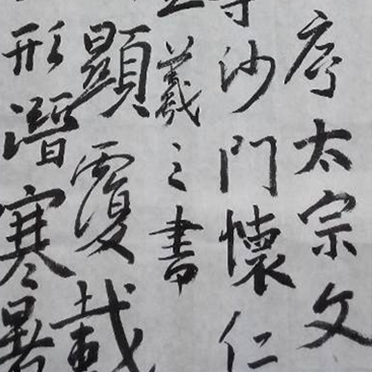 序太宗文
沙門懷仁
羲之書
顯覆載
形潛寒暑